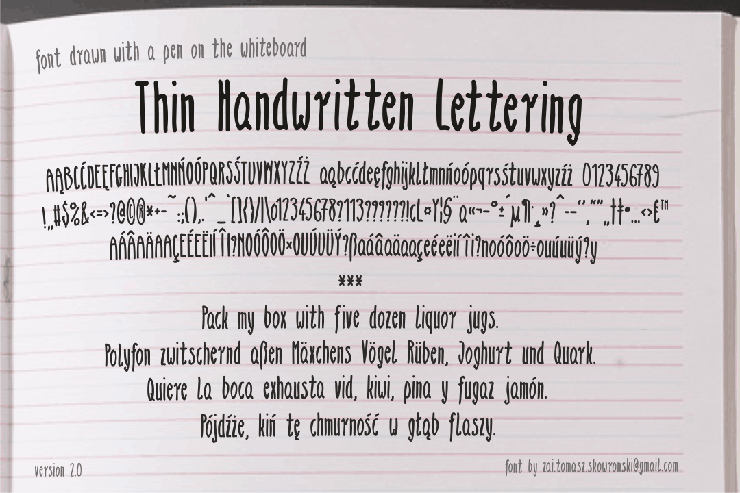 font drawn with a pen on the whiteboard
Thin Handwritten Lettering
AĄBCĆDEĘFGHIJKLŁMNŃOÓPQRSŚTUVWXYZŹŻ aąbcćdeęfghijklłmnńoópqrsśtuvwxyzźż 0123456789
***
Pack my box with five dozen liquor jugs.
Polyfon zwitschernd aßen Mäxchens Vögel Rüben, Joghurt und Quark.
Quiere la boca exhausta vid, kiwi, pina y fugaz jamón.
Pójdźże, kiń tę chmurność w głąb flaszy.
version 2.0
font by zai.tomasz.skowronski@gmail.com